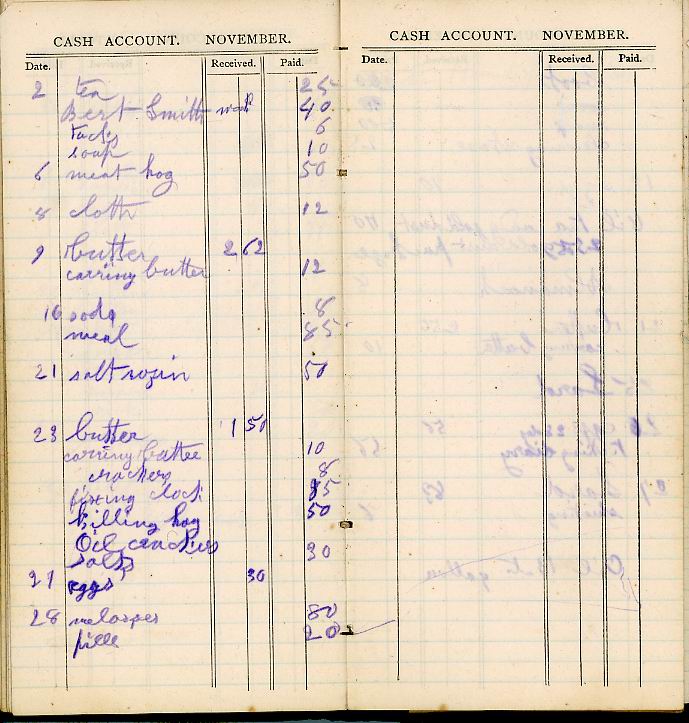 CASH ACCOUNT. NOVEMBER.
Date. Received. Paid.
2 tea 25
Bert Smith work 40
Tacks 6
soap 10
6 meat hog 50
8 cloth 12
9 Butter 2 62
carring butter 12
16 soda 8
meal 85
21 salt rozin 50
23 butter 1 50
carring battee 10
crackers 8
fixing clock 85
killing hog 50
Oil crackers 30
salts
27 eggs 30
28 melasses 80
pille 20
CASH ACCOUNT. NOVEMBER.
Date. Received. Paid.